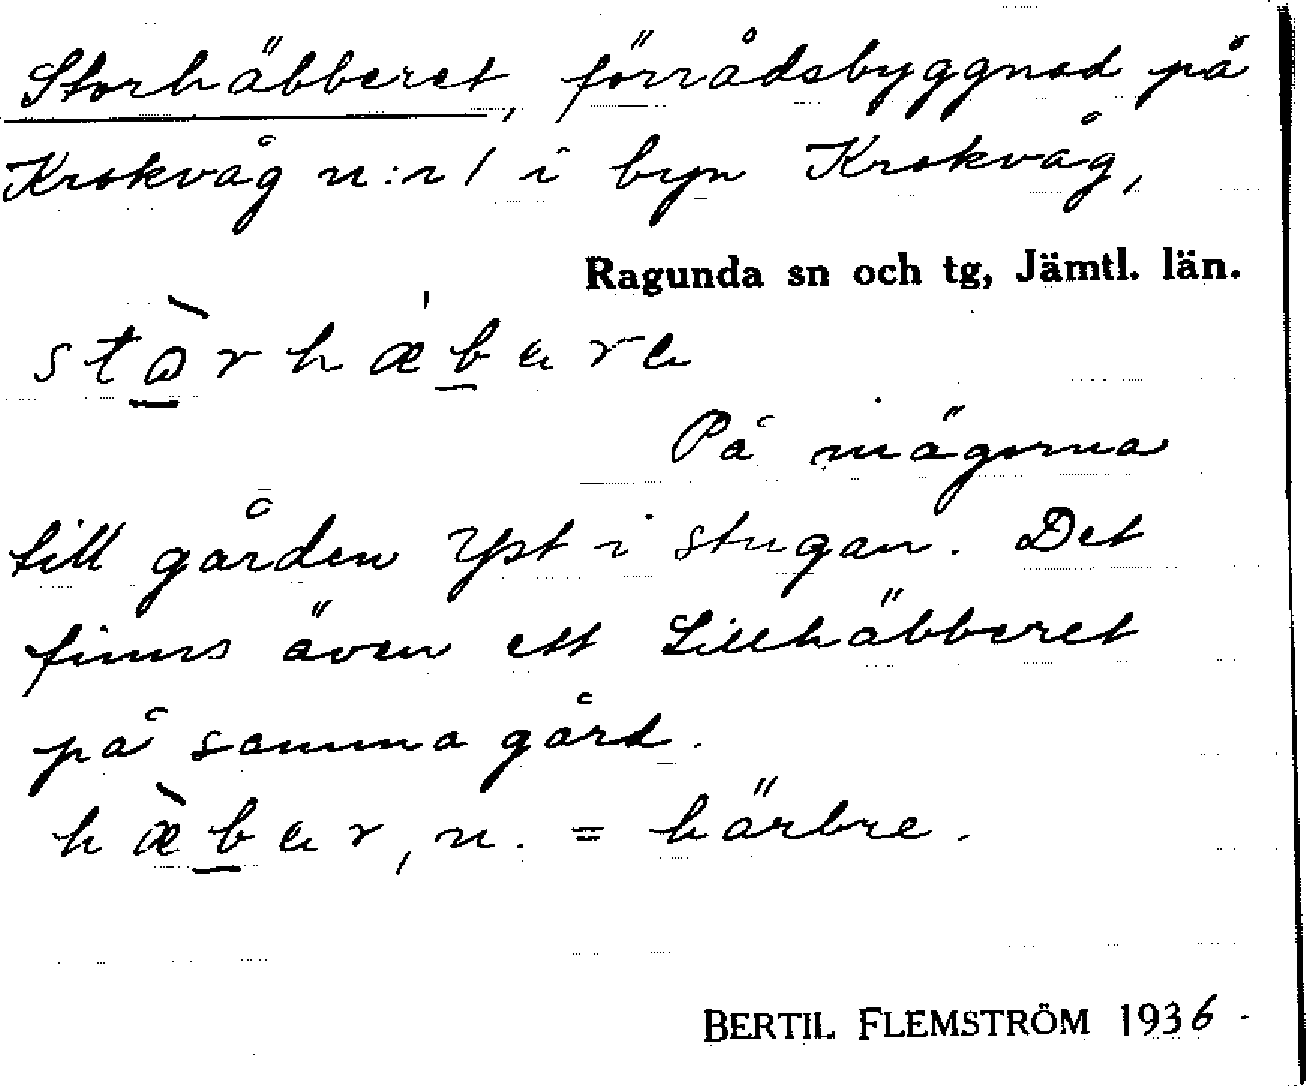 Storhäbberet, förrådsbyggnad på
Krokvåg n:r 1 i byn Krokvåg,
Ragunda sn och tg, Jämtl. län.
stò̱rhǽḇərə
På mägorna
till gården Yst i stugan. Det
finns även ett Lillhäbberet
på samma gård.
hæ̀ḇər, n. = härbre.
BERTIL FLEMSTRÖM 1936